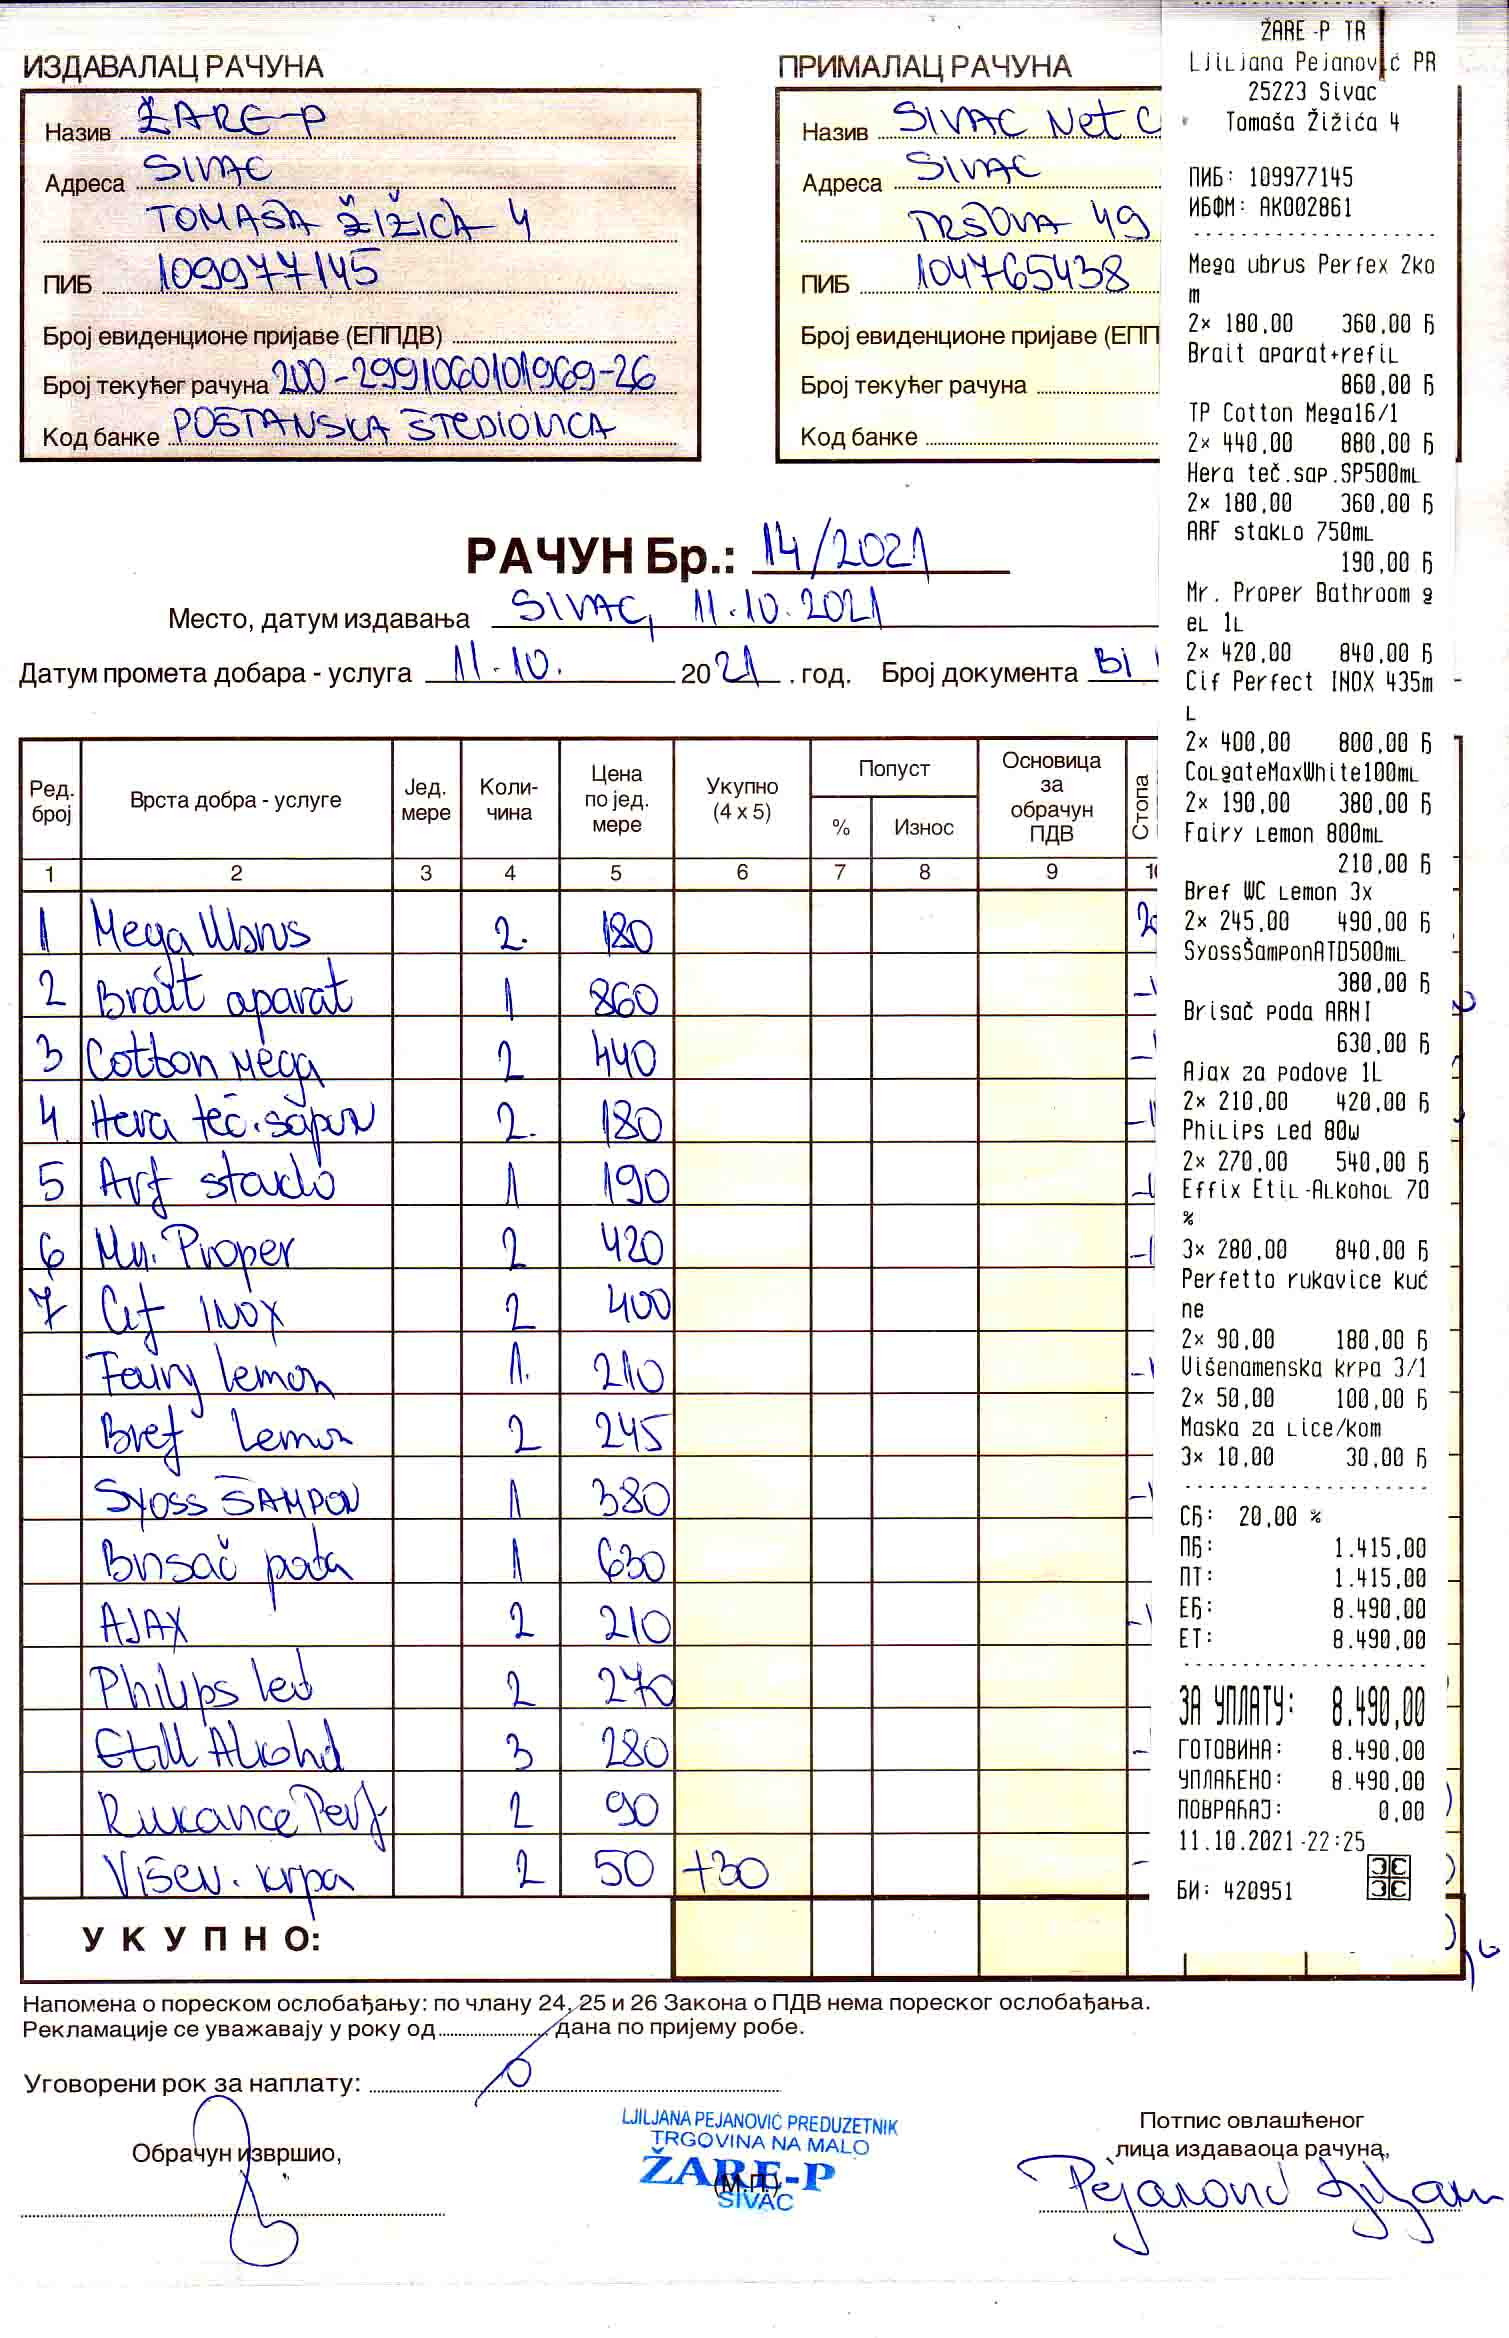 ИЗДАВАЛАЦ РАЧУНА
Назив ŽARE-P
Адреса SIVAC
TOMAŠA ŽIŽIĆA 4
ПИБ 109977145
Број евиденционе пријаве (ЕППДВ)
Број текућег рачуна 200-2991060101969-26
Код банке POŠTANSKA ŠTEDIONICA
ПРИМАЛАЦ РАЧУНА
Назив SIVAC Net C
Адреса SIVAC
TRŠOVA 49
ПИБ 104765438
Број евиденционе пријаве (ЕПП
Број текућег рачуна
Код банке
РАЧУН Бр.: 14/2021
Место, датум издавања SIVAC, 11.10.2021
Датум промета добара - услуга 11.10. 2021. год. Број документа BI
Ред. број Врста добра - услуге Јед. мере Коли-чина Цена по јед. мере Укупно (4 x 5) Попуст % Износ Основица за обрачун ПДВ Стопа
1 2 3 4 5 6 7 8 9 10
1 Mega Ubrus 2. 180 20
2 Brait aparat 1 860
3 Cotton Mega 2 440
4. Hera teč. sapun 2. 180
5 Arf staklo 1 190
6 Mr. Proper 2 420
7 Cif INOX 2 400
Fairy lemon 1. 210
Bref lemon 2 245
Syoss ŠAMPON 1 380
Brisač poda 1 630
AJAX 2 210
Philips led 2 270
Etil Alkohol 3 280
Rukavice Perf 2 90
Višen. krpa 2 50 +30
УКУПНО:
Напомена о пореском ослобађању: по члану 24, 25 и 26 Закона о ПДВ нема пореског ослобађања.
Рекламације се уважавају у року од дана по пријему робе.
Уговорени рок за наплату: 0
Обрачун извршио,
LJILJANA PEJANOVIĆ PREDUZETNIK
TRGOVINA NA MALO
ŽARE-P
(М.П.)
SIVAC
Потпис овлашћеног
лица издаваоца рачуна,
Pejanović Ljiljana
ŽARE-P TR
Ljiljana Pejanović PR
25223 Sivac
Tomaša Žižića 4
ПИБ: 109977145
ИБФМ: АК002861
Mega ubrus Perfex 2ko
m
2x 180,00 360,00 Ђ
Brait aparat+refil
860,00 Ђ
TP Cotton Mega16/1
2x 440,00 880,00 Ђ
Hera teč.sap.SP500mL
2x 180,00 360,00 Ђ
ARF staklo 750mL
190,00 Ђ
Mr. Proper Bathroom g
el 1L
2x 420,00 840,00 Ђ
Cif Perfect INOX 435m
L
2x 400,00 800,00 Ђ
ColgateMaxWhite100mL
2x 190,00 380,00 Ђ
Fairy Lemon 800mL
210,00 Ђ
Bref WC Lemon 3x
2x 245,00 490,00 Ђ
SyossŠamponATD500mL
380,00 Ђ
Brisač poda ARNI
630,00 Ђ
Ajax za podove 1L
2x 210,00 420,00 Ђ
Philips Led 80w
2x 270,00 540,00 Ђ
Effix Etil-Alkohol 70
%
3x 280,00 840,00 Ђ
Perfetto rukavice kuć
ne
2x 90,00 180,00 Ђ
Višenamenska krpa 3/1
2x 50,00 100,00 Ђ
Maska za lice/kom
3x 10,00 30,00 Ђ
СЂ: 20,00 %
ПЂ: 1.415,00
ПТ: 1.415,00
ЕЂ: 8.490,00
ЕТ: 8.490,00
ЗА УПЛАТУ: 8.490,00
ГОТОВИНА: 8.490,00
УПЛАЋЕНО: 8.490,00
ПОВРАЋАЈ: 0,00
11.10.2021-22:25
БИ: 420951